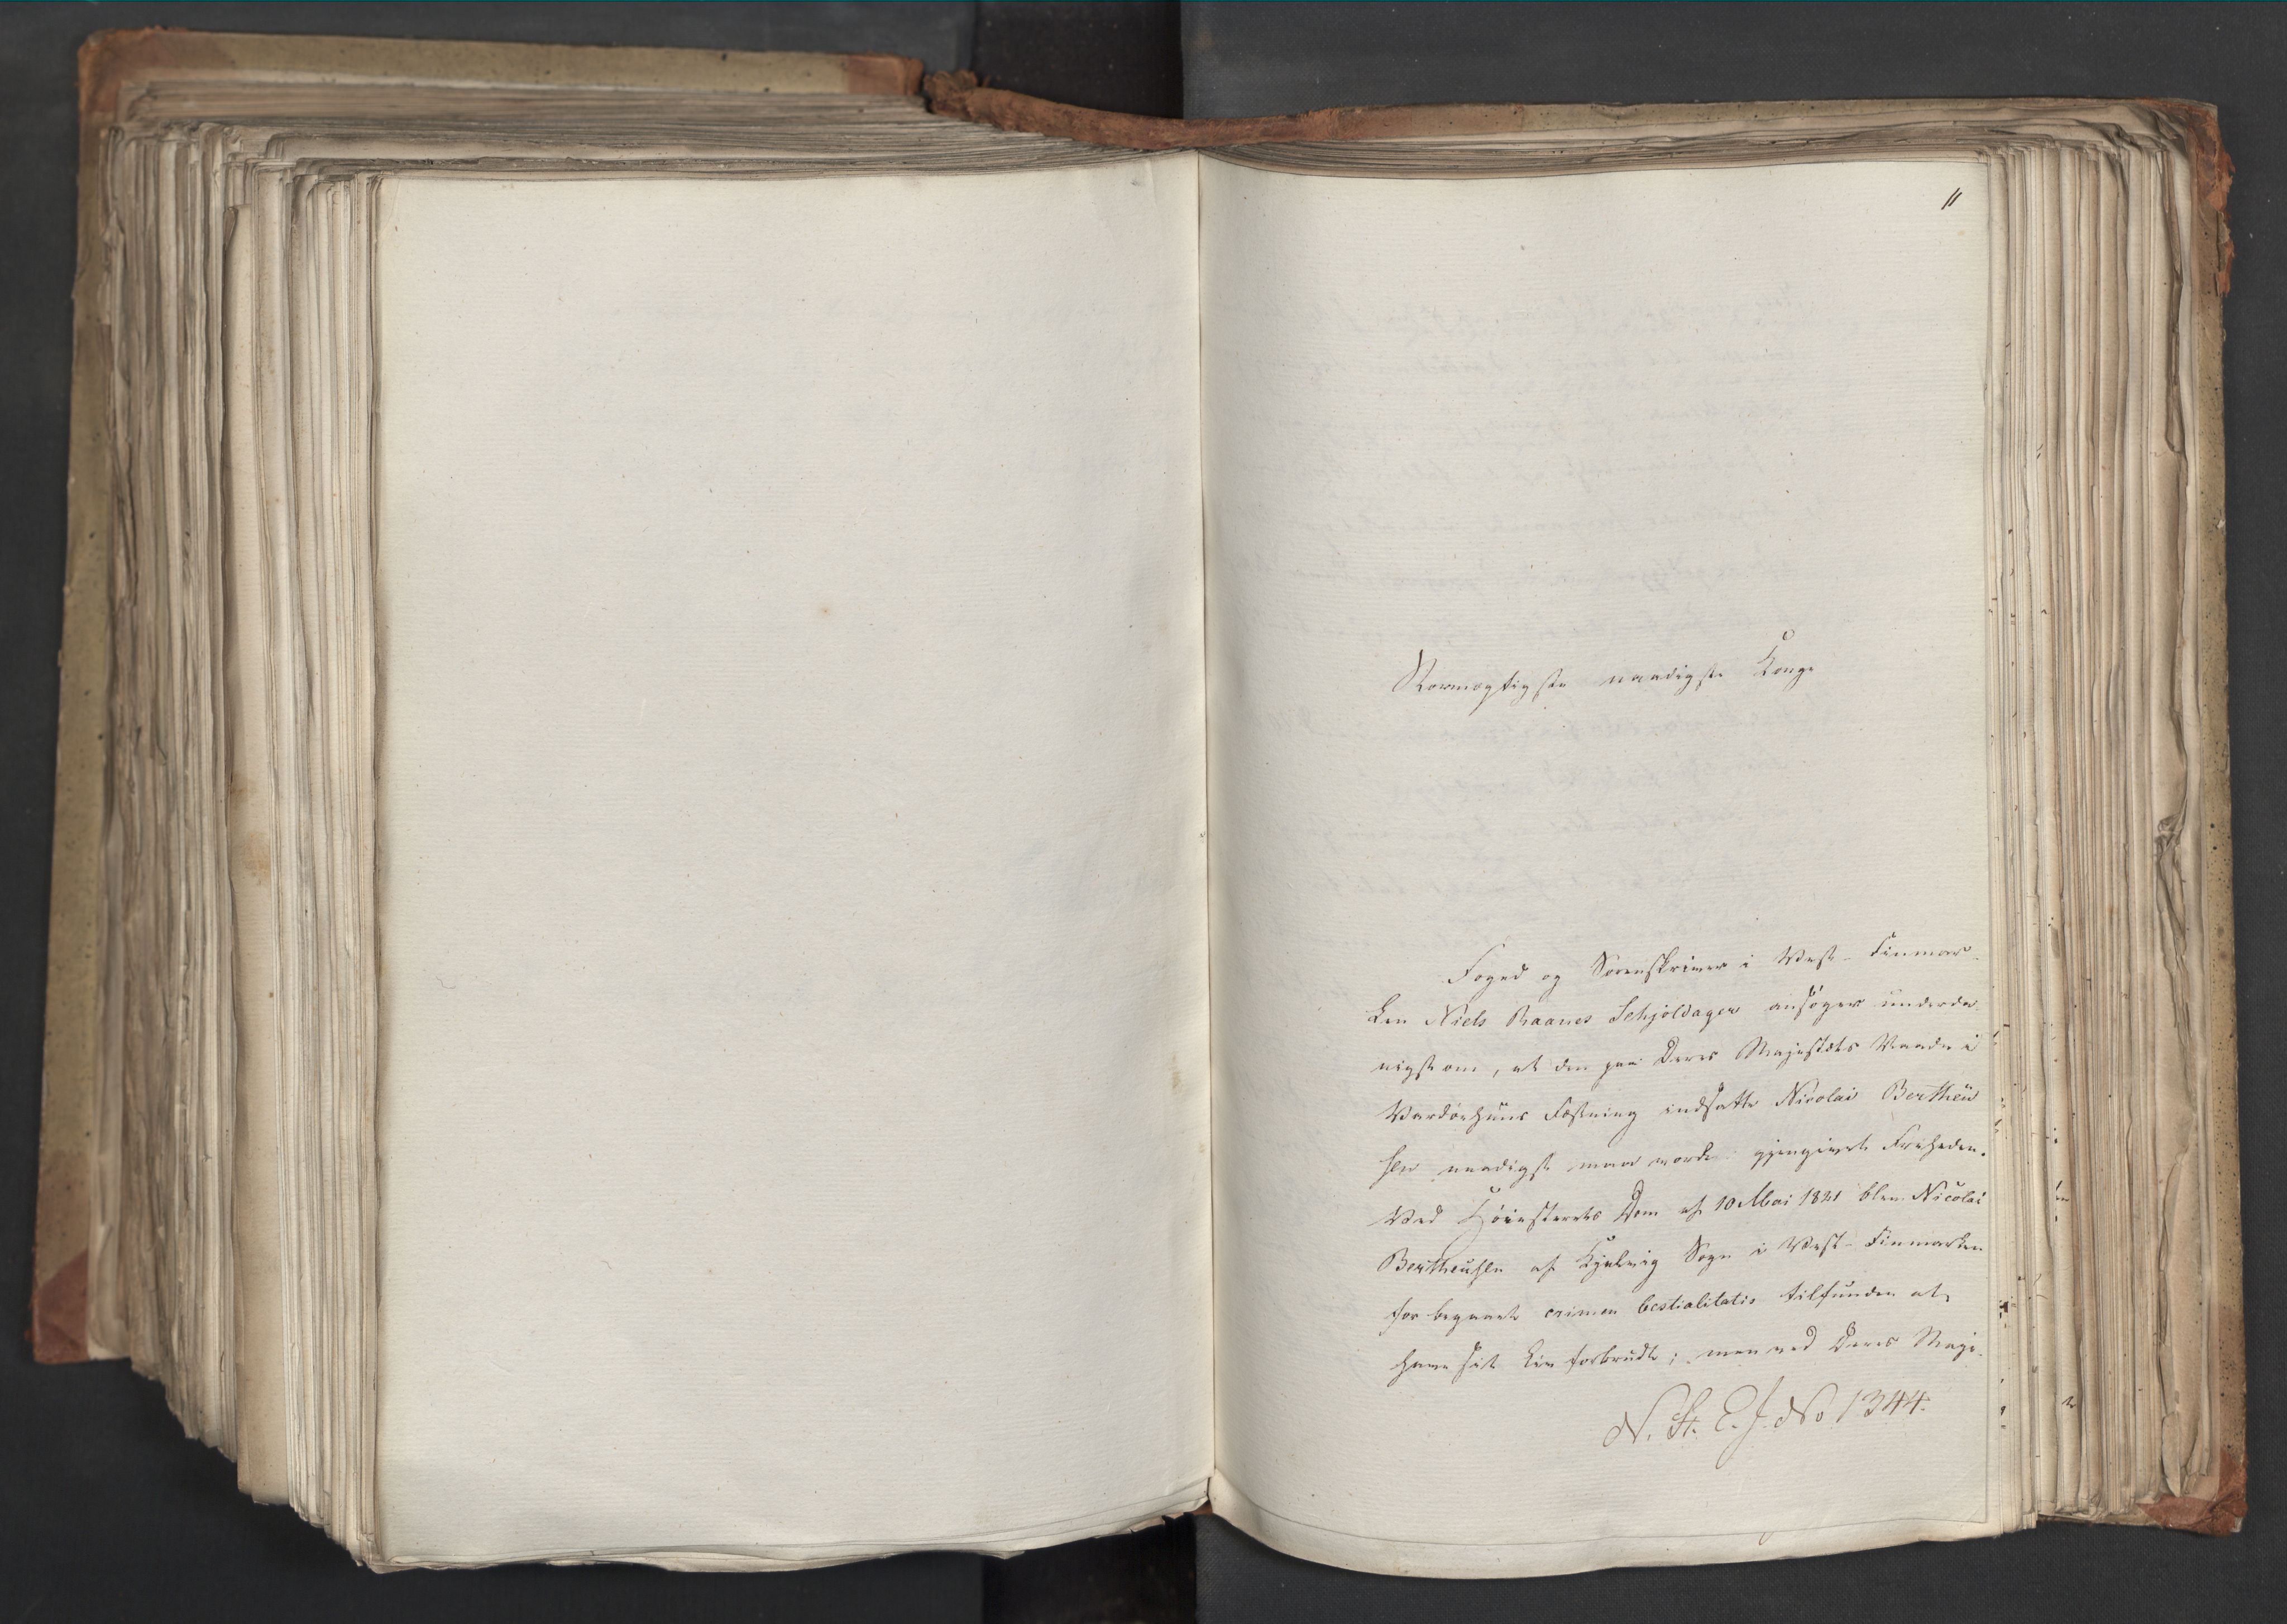 11
Stormægtigste naadigste Konge
Foged og Sorenskriver i Vest-Finmar-
ken Niels Raanes Schjoldager ansøger underda-
nigst om, at den paa Deres Majestæts Naade i
Vardøehuus Fæstning indsatte Nicolai Bertheu
sen naadigst maa vorde gjengivet Friheden.
Ved Høiesterets Dom af 10 Mai 1821 blev Nicolai
Bertheusen af Kjelvig Sogn i Vest-Finmarken
for begaaet crimen bestialitatis tilfunden at
have sit Liv forbrudt; men ved Deres Maje-
N. St. E. J. No 1344.